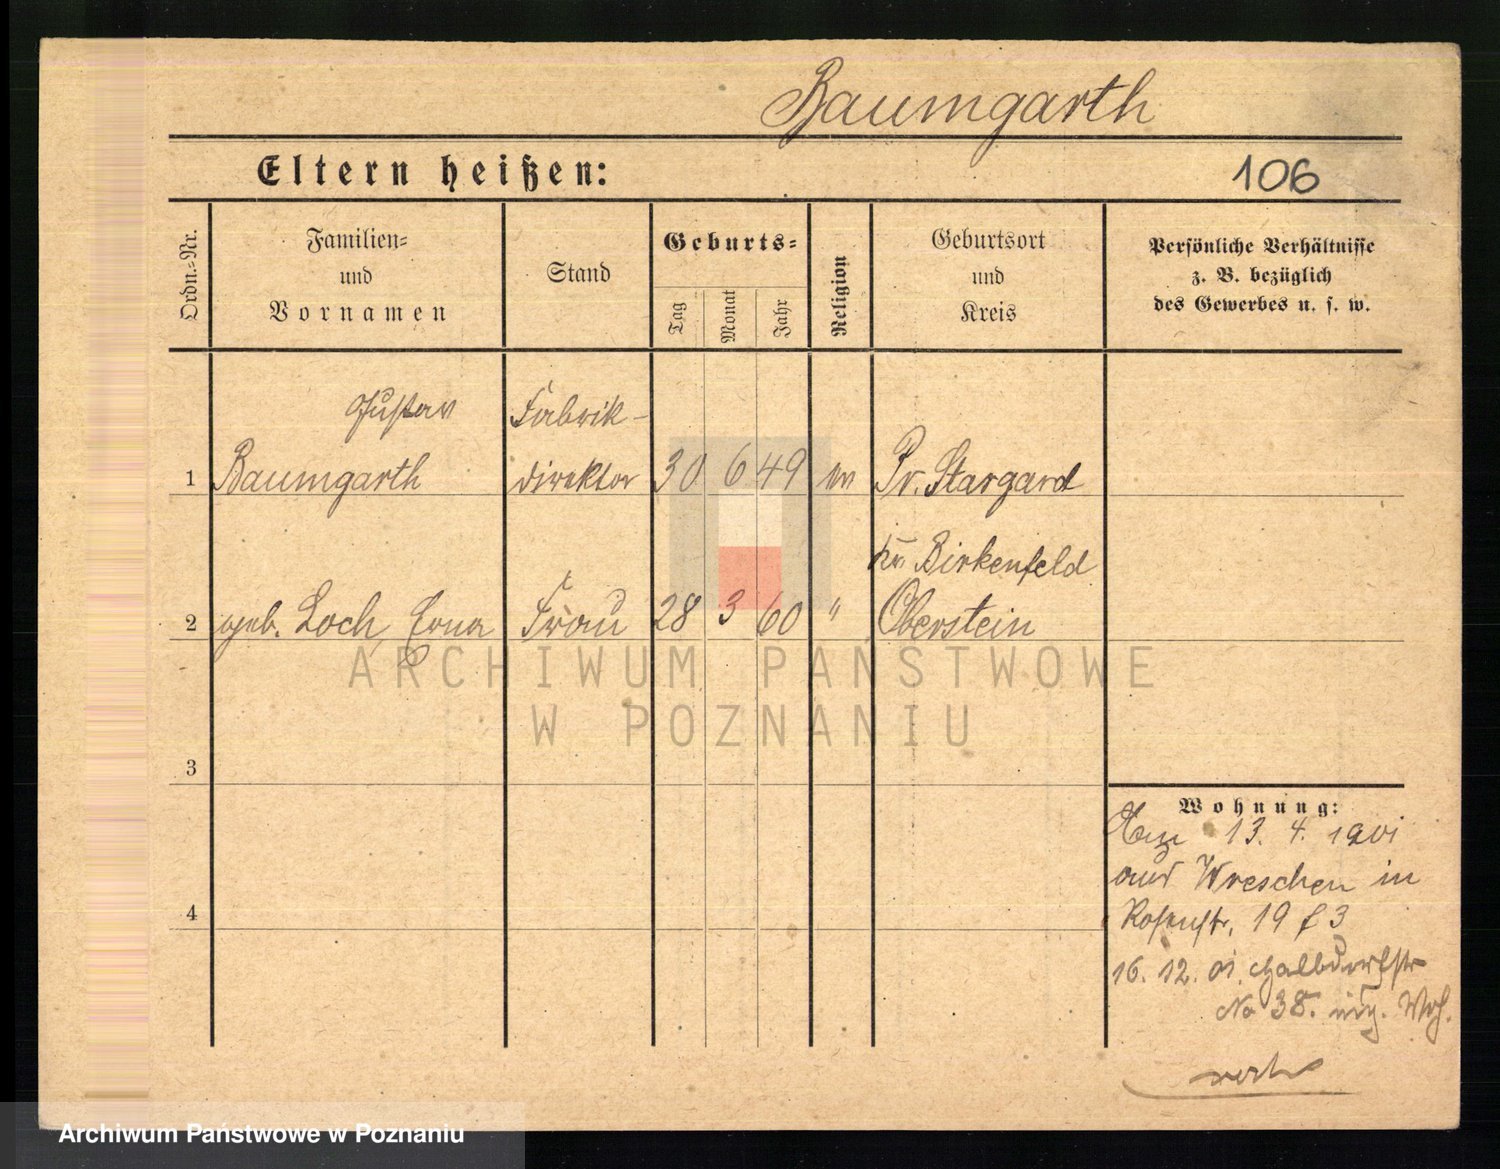 Baumgarth
106
Eltern heißen:
Ordn.-Nr.
Familien-
und
Vornamen
Stand
Geburts-
Tag
Monat
Jahr
Religion
Geburtsort
und
Kreis
Persönliche Verhältnisse
z. B. bezüglich
des Gewerbes u. s. w.
Gustav
Fabrik-
1 Baumgarth direktor 30 6 49 ev Pr. Stargard
Kr. Birkenfeld
2 geb. Loch, Erna Frau 28 3 60 " Oberstein
3
4
Wohnung:
13. 4. 1901
aus Wreschen in
Rosenstr. 19 3
16. 12. 01. Halbdorfstr
No 38. Woh.
ARCHIWUM PAŃSTWOWE
W POZNANIU
Archiwum Państwowe w Poznaniu